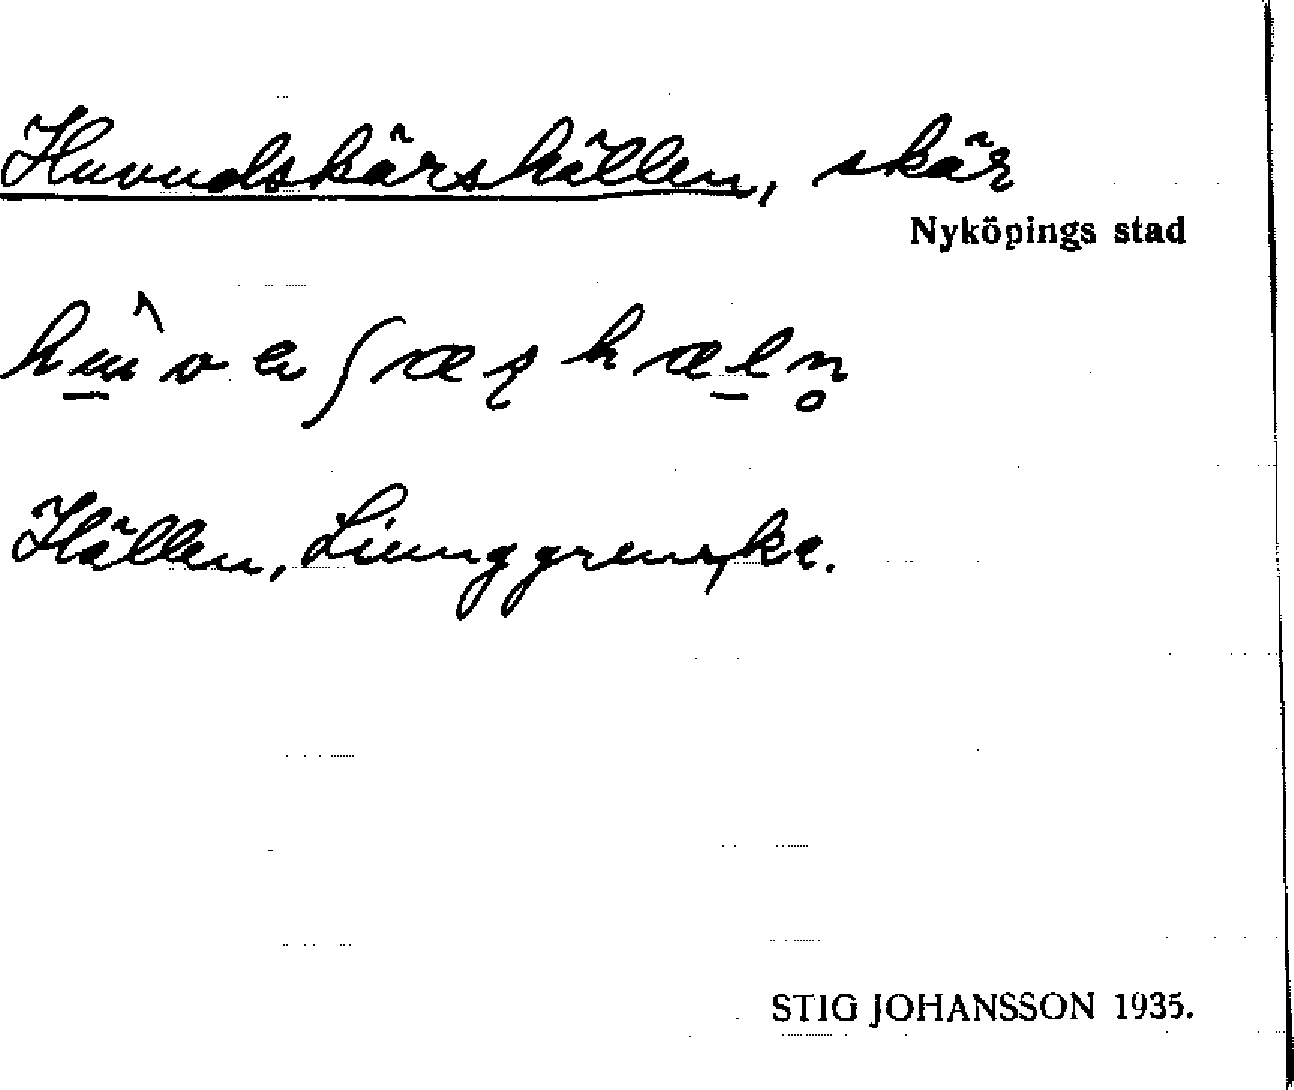 Huvudskärshällen, skär
Nyköpings stad
Hällen, Ljunggrens ka.
STIG JOHANSSON 1935.